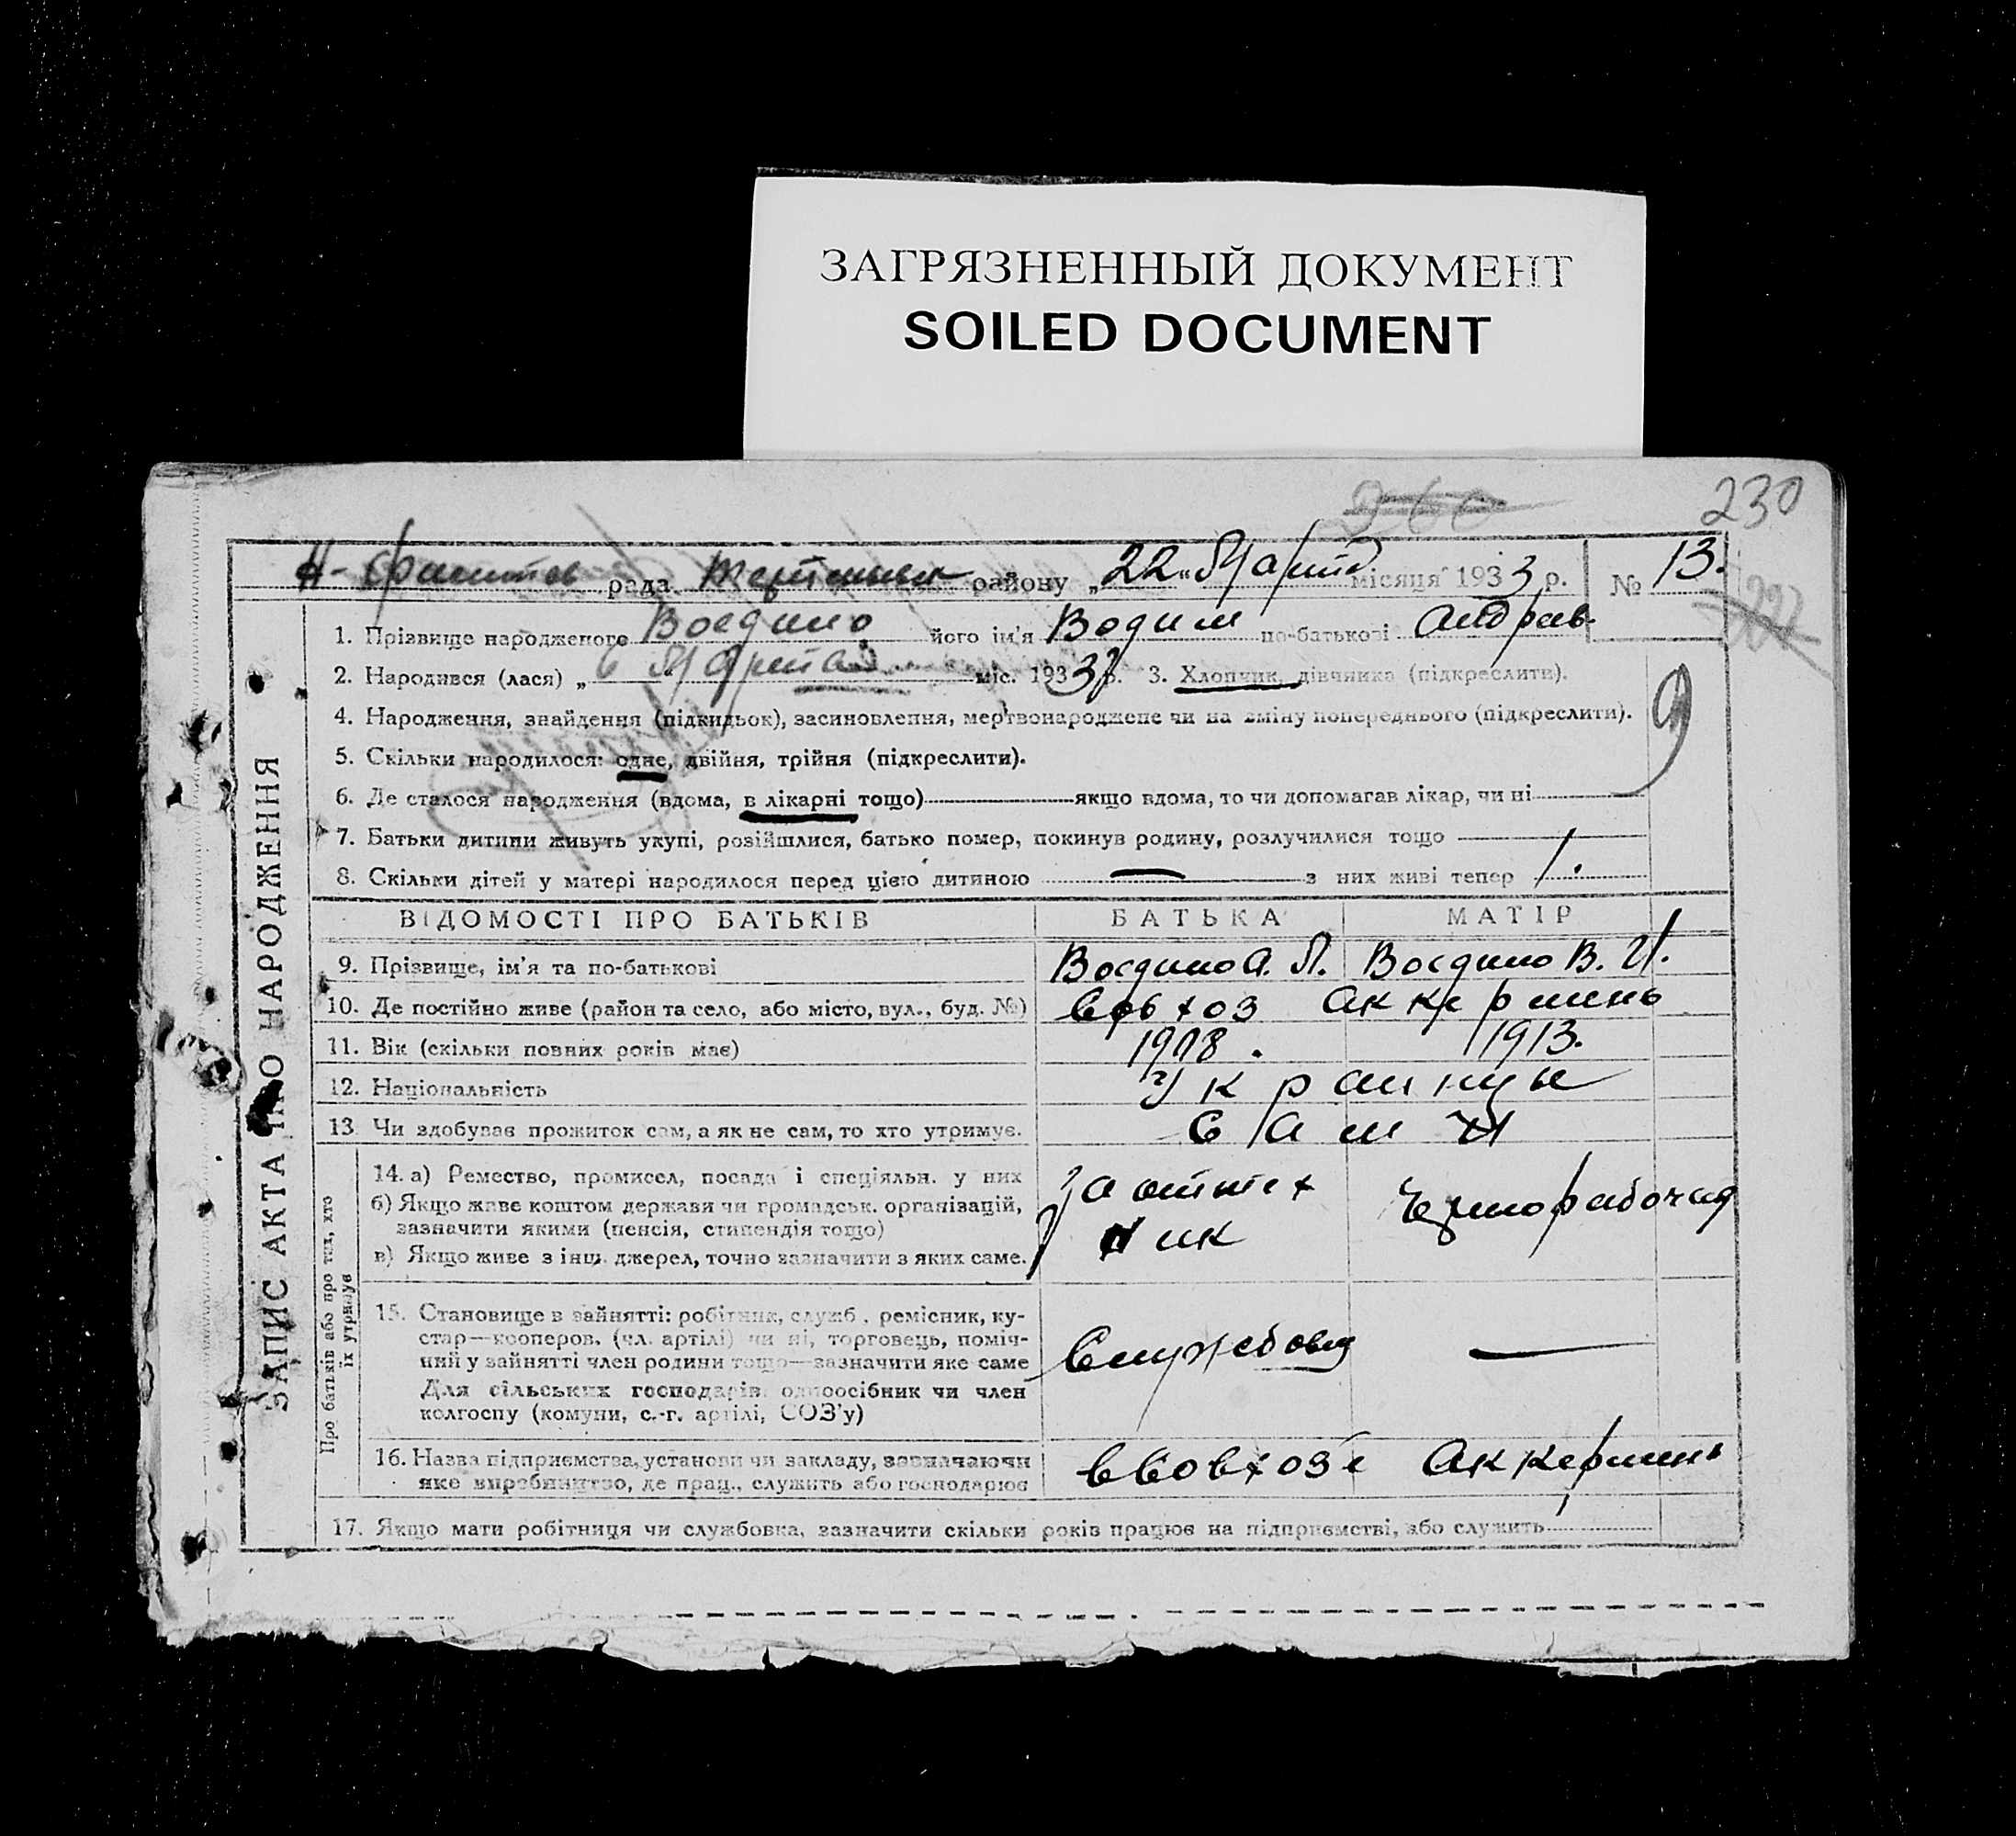 ЗАГРЯЗНЕННЫЙ ДОКУМЕНТ
SOILED DOCUMENT
230
рада району „22“ Марта місяця 1933 р. № 13.
1. Прізвище народженого Воедило його ім'я Водим по-батькові Андрив.
2. Народився (лася) „6 Марта міс. 1933 р. 3. Хлопчик, дівчинка (підкреслити).
4. Народження, знайдення (підкидьок), засиновлення, мертвонароджене чи на зміну попереднього (підкреслити).
9
5. Скільки народилося: одне, двійня, трійня (підкреслити).
6. Де сталося народження (вдома, в лікарні тощо) якщо вдома, то чи допомагав лікар, чи ні
7. Батьки дитини живуть укупі, розійшлися, батько помер, покинув родину, розлучилися тощо
8. Скільки дітей у матері народилося перед цією дитиною — з них живі тепер 1.
ЗАПИС АКТА ПРО НАРОДЖЕННЯ
ВІДОМОСТІ ПРО БАТЬКІВ БАТЬКА МАТІР
9. Прізвище, ім'я та по-батькові Воедило А. П. Воедило В. И.
10. Де постійно живе (район та село, або місто, вул., буд. №) Совхоз Аккермень
11. Вік (скільки повних років має) 1908. 1913.
12. Національність Украинцы
13. Чи здобуває прожиток сам, а як не сам, то хто утримує. Сами
Про батьків або про тих, хто їх утримує
14. а) Ремество, промисел, посада і спеціяльн. у них
б) Якщо живе коштом держави чи громадськ. організацій,
зазначити якими (пенсія, стипендія тощо)
в) Якщо живе з інш. джерел, точно зазначити з яких саме.
Зооттех
ник
Чернорабочая
15. Становище в зайнятті: робітник, служб., ремісник, ку-
стар—кооперов. (чл. артілі) чи ні, торговець, поміч-
ний у зайнятті член родини тощо—зазначити яке саме
Для сільських господарів: одноосібник чи член
колгоспу (комуни, с.-г. артілі, СОЗ'у)
—
16. Назва підприємства, установи чи закладу, зазначаючи
яке виробництво, де прац., служить або господарює
в Совхозе Аккермень
17. Якщо мати робітниця чи службовка, зазначити скільки років працює на підприємстві, або служить